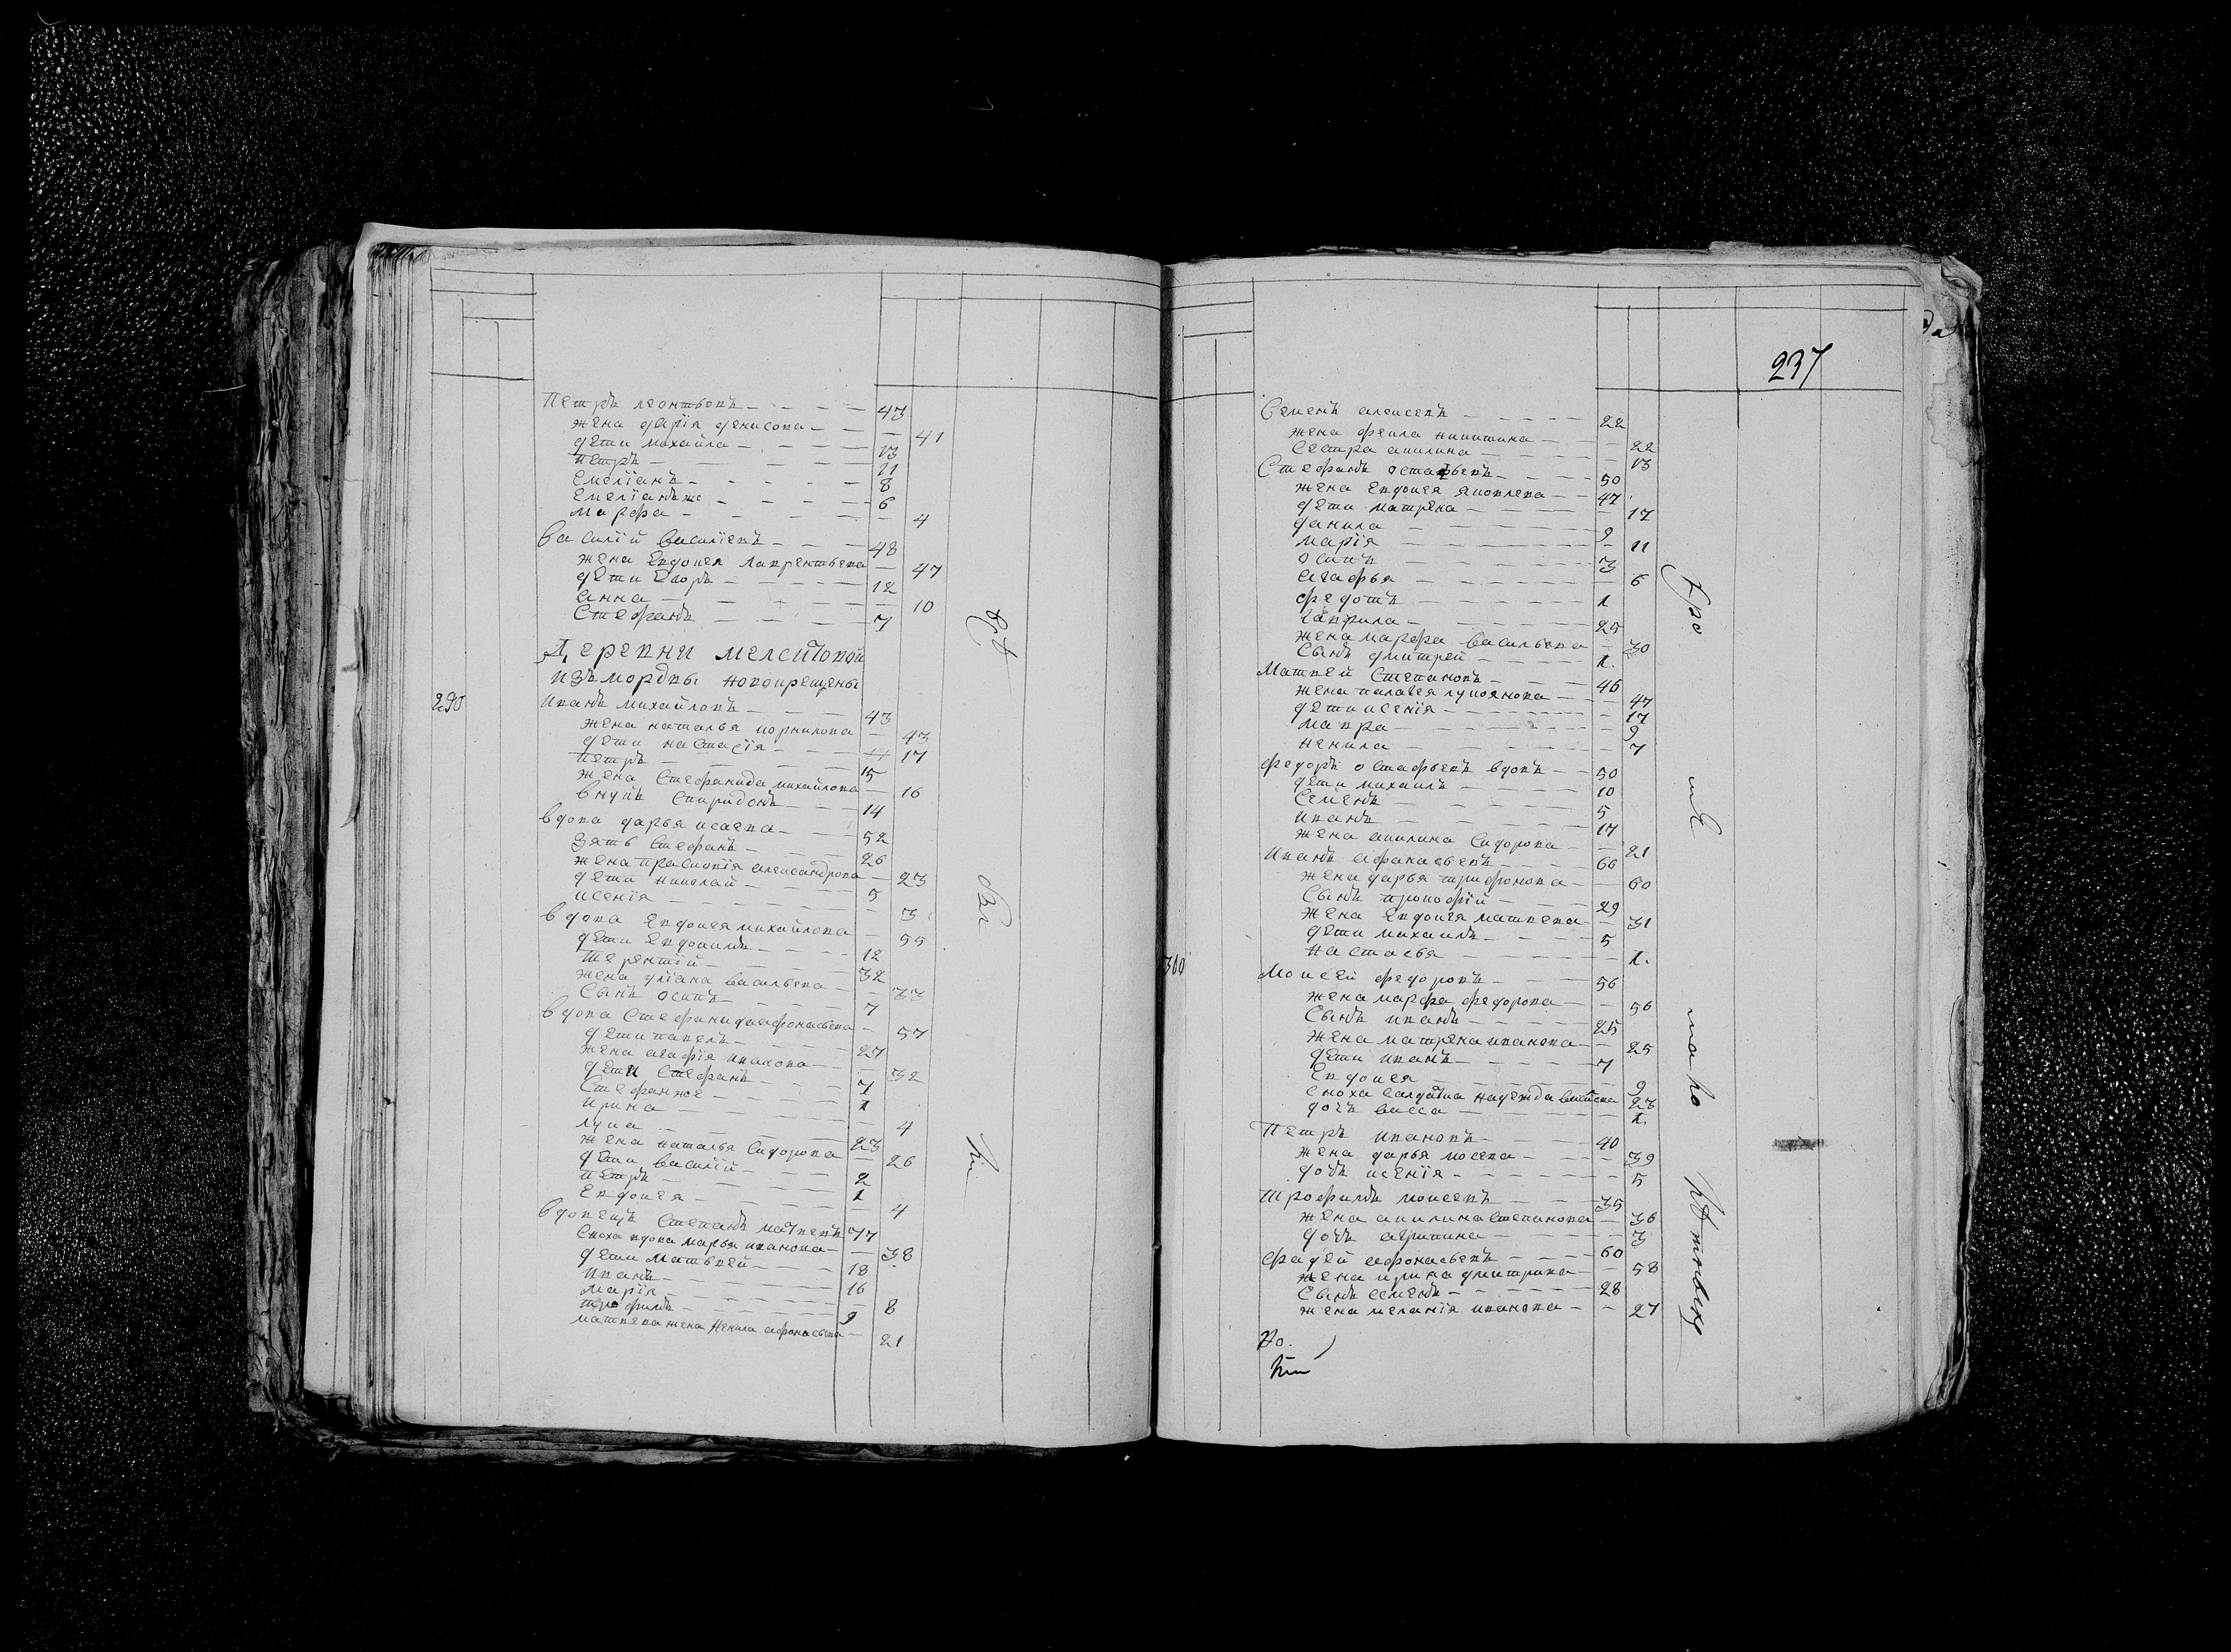 Петръ леонтьевъ 43
жена дарія денисова 41
дети михайла 13
петръ 11
Емеліанъ 8
Емеліанъже 6
Марфа 4
Василій Василіевъ 48
жена Евдокея лаврентьева 47
дети Егоръ 12
Анна 10
Стефанъ 7
Деревни мелситовой
изъ мордвы новокрещены
290 Иванъ михайловъ 43
жена наталья корнилова 43
дети настасія 17
петръ 15
жена Стефанида михайлова 16
внукъ Спиридонъ 14
вдова дарья исаева 52
зять Стефанъ 26
жена прасковія александрова 23
дети николай 5
ксенія 3
вдова Евдокея михайлова 55
дети Евдокимъ 12
Терентій 32
жена уліана васильева 33
Сынъ осипъ 7
вдова Стефанида афонасьева 57
дети павелъ 27
жена агафія иванова 32
дети Стефанъ 7
Стефанже 1
Ирина 4
лука 23
жена наталья Сидорова 26
дети василій 2
петръ 1
Евдокея 4
вдовецъ Степанъ матвевъ 77
Сноха вдова марья иванова 38
дети Матьвей 18
Иванъ 16
Марія 8
трофимъ 9
матвева жена Ненила афонасьева 21
237
Семенъ алексевъ 22
жена фекла никитина 22
Сестра акилина 13
Стефанъ остафьевъ 50
жена Евдокея яковлева 47
дети матрена 17
данила 9
марія 11
осипъ 3
агафья 6
федотъ 1
Гаврила 25
жена марфа васильева 30
Сынъ дмитрей 1
Матвей Степановъ 46
жена палагея лукоянова 47
дети ксенія 17
мавра 9
ненила 7
федоръ остафьевъ вдовъ 50
дети михаилъ 10
Семенъ 5
иванъ 17
жена акилина Сидорова 21
Иванъ афанасьевъ 60
жена дарья трифонова 60
Сынъ прокофій 29
жена Евдокея матвева 31
дети михаилъ 5
настасья 1
300 Моисей федоровъ 56
жена марфа федорова 56
Сынъ иванъ 25
жена матрена иванова 25
дети иванъ 7
Евдокея 9
сноха салдатка надежда 23
дочь васса 1
Петръ ивановъ 40
жена дарья мосева 39
дочь ксенія 5
трофимъ моисевъ 35
жена акилина степанова 36
дочь агрипина 3
фадей афонасьевъ 60
жена ирина дмитрива 58
Сынъ семенъ 28
жена меланія иванова 27